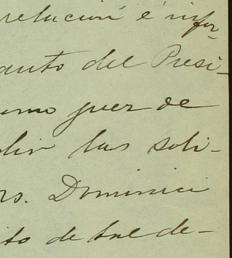 relación é infor-
auto del Presi-
como juez de
dir las soli-
rs. Dominici
ito de tal de-